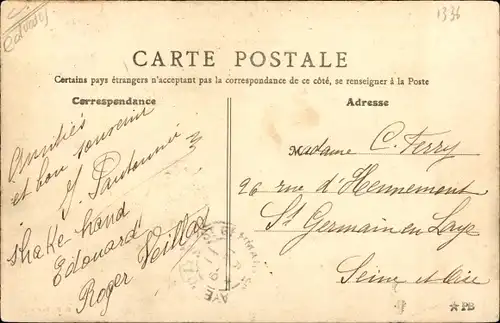 1336
CARTE POSTALE
Certains pays étrangers n'acceptant pas la correspondance de ce côté, se renseigner à la Poste
Correspondance
Adresse
Amitiés
et bon souvenir
shake-hand
Edouard
Roger Veillas
Madame C. Ferry
26 rue d'Hennemont
St Germain en Laye
Seine et Oise
PB